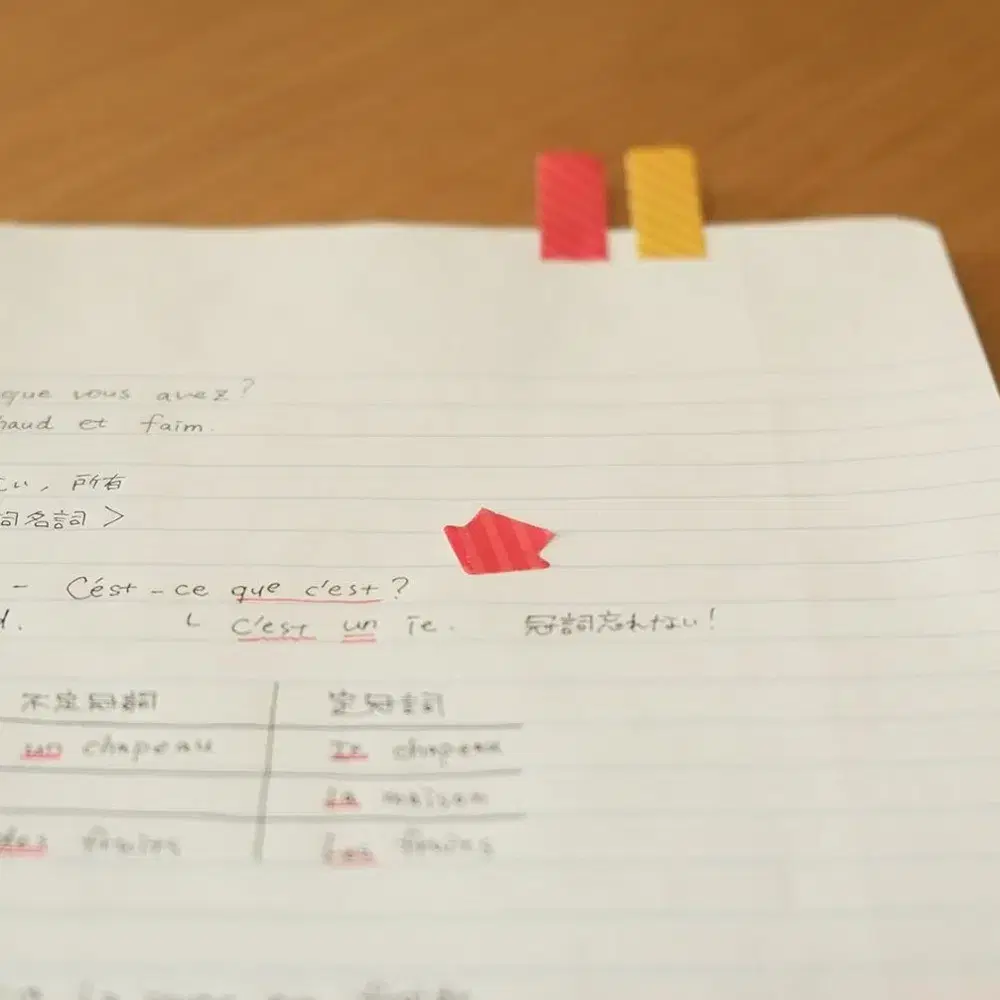 que vous avez?
haud et faim.
い, 所有
詞名詞 >
- Cést-ce que c'est?
d. └ C'est un ïe. 冠詞忘れない!
不定冠詞 定冠詞
un chapeau le chapeau
la maison
des les